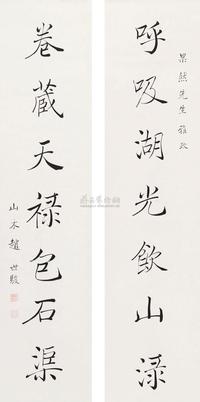 果然先生雅政
呼吸湖光飲山渌
卷藏天禄包石渠
山木趙世駿